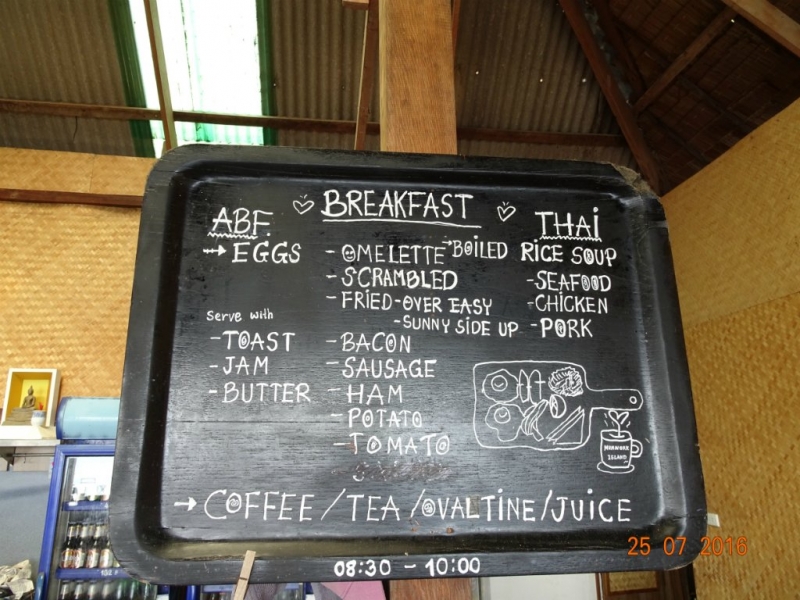 BREAKFAST
ABF.
→ EGGS
- OMELETTE
→ BOILED
- SCRAMBLED
- FRIED - OVER EASY
- SUNNY SIDE UP
Serve with
- TOAST
- JAM
- BUTTER
- BACON
- SAUSAGE
- HAM
- POTATO
- TOMATO
THAI
RICE SOUP
- SEAFOOD
- CHICKEN
- PORK
ISLAND
→ COFFEE / TEA / OVALTINE / JUICE
08:30 - 10:00
25 07 2016